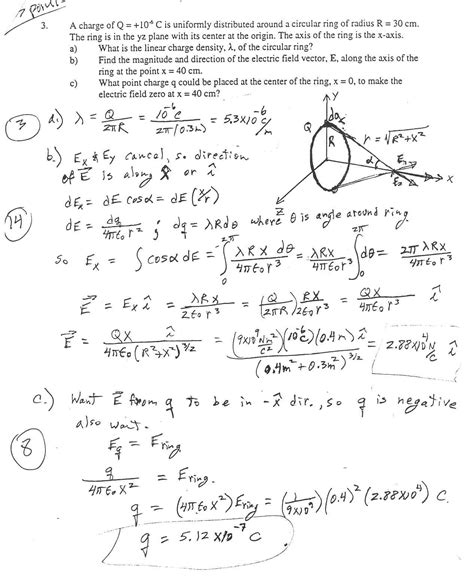 ? points
3. A charge of Q = +10⁻⁶ C is uniformly distributed around a circular ring of radius R = 30 cm.
The ring is in the yz plane with its center at the origin. The axis of the ring is the x-axis.
a) What is the linear charge density, λ, of the circular ring?
b) Find the magnitude and direction of the electric field vector, E, along the axis of the
ring at the point x = 40 cm.
c) What point charge q could be placed at the center of the ring, x = 0, to make the
electric field zero at x = 40 cm?
3
a.) λ = Q/2πR = 10⁻⁶ C/2π(0.3m) = 5.3×10⁻⁶ C/m
Y
dQ
Q
R
r = √R²+x²
α
x
Z
b.) Ex & Ey cancel, so direction
of E⃗ is along x̂ or î
dEx = dE cosα = dE (x/r)
14
dE = dq/4πε₀r² ; dq = λRdθ where θ is angle around ring.
so Ex = ∫ cosα dE = ∫₀^2π λRx dθ/4πε₀r³ = λRx/4πε₀r³ ∫₀^2π dθ = 2π λRx/4πε₀r³
E⃗ = Ex î = λRx/2ε₀r³ = (Q/2πR) Rx/2ε₀r³ = Qx/4πε₀r³ î
E⃗ = Qx î/4πε₀(R²+x²)^3/2 = (9×10⁹ Nm²/C²)(10⁻⁶C)(0.4m) î/(0.4m²+0.3m²)^3/2 = 2.88×10⁴ N/C î
c.) Want E⃗ from q to be in -x̂ dir., so q is negative
also want.
8
Eq = Ering
q/4πε₀x² = Ering.
q = (4πε₀x²) Ering = (1/9×10⁹)(0.4)²(2.88×10⁴) C.
q = 5.12×10⁻⁷ C